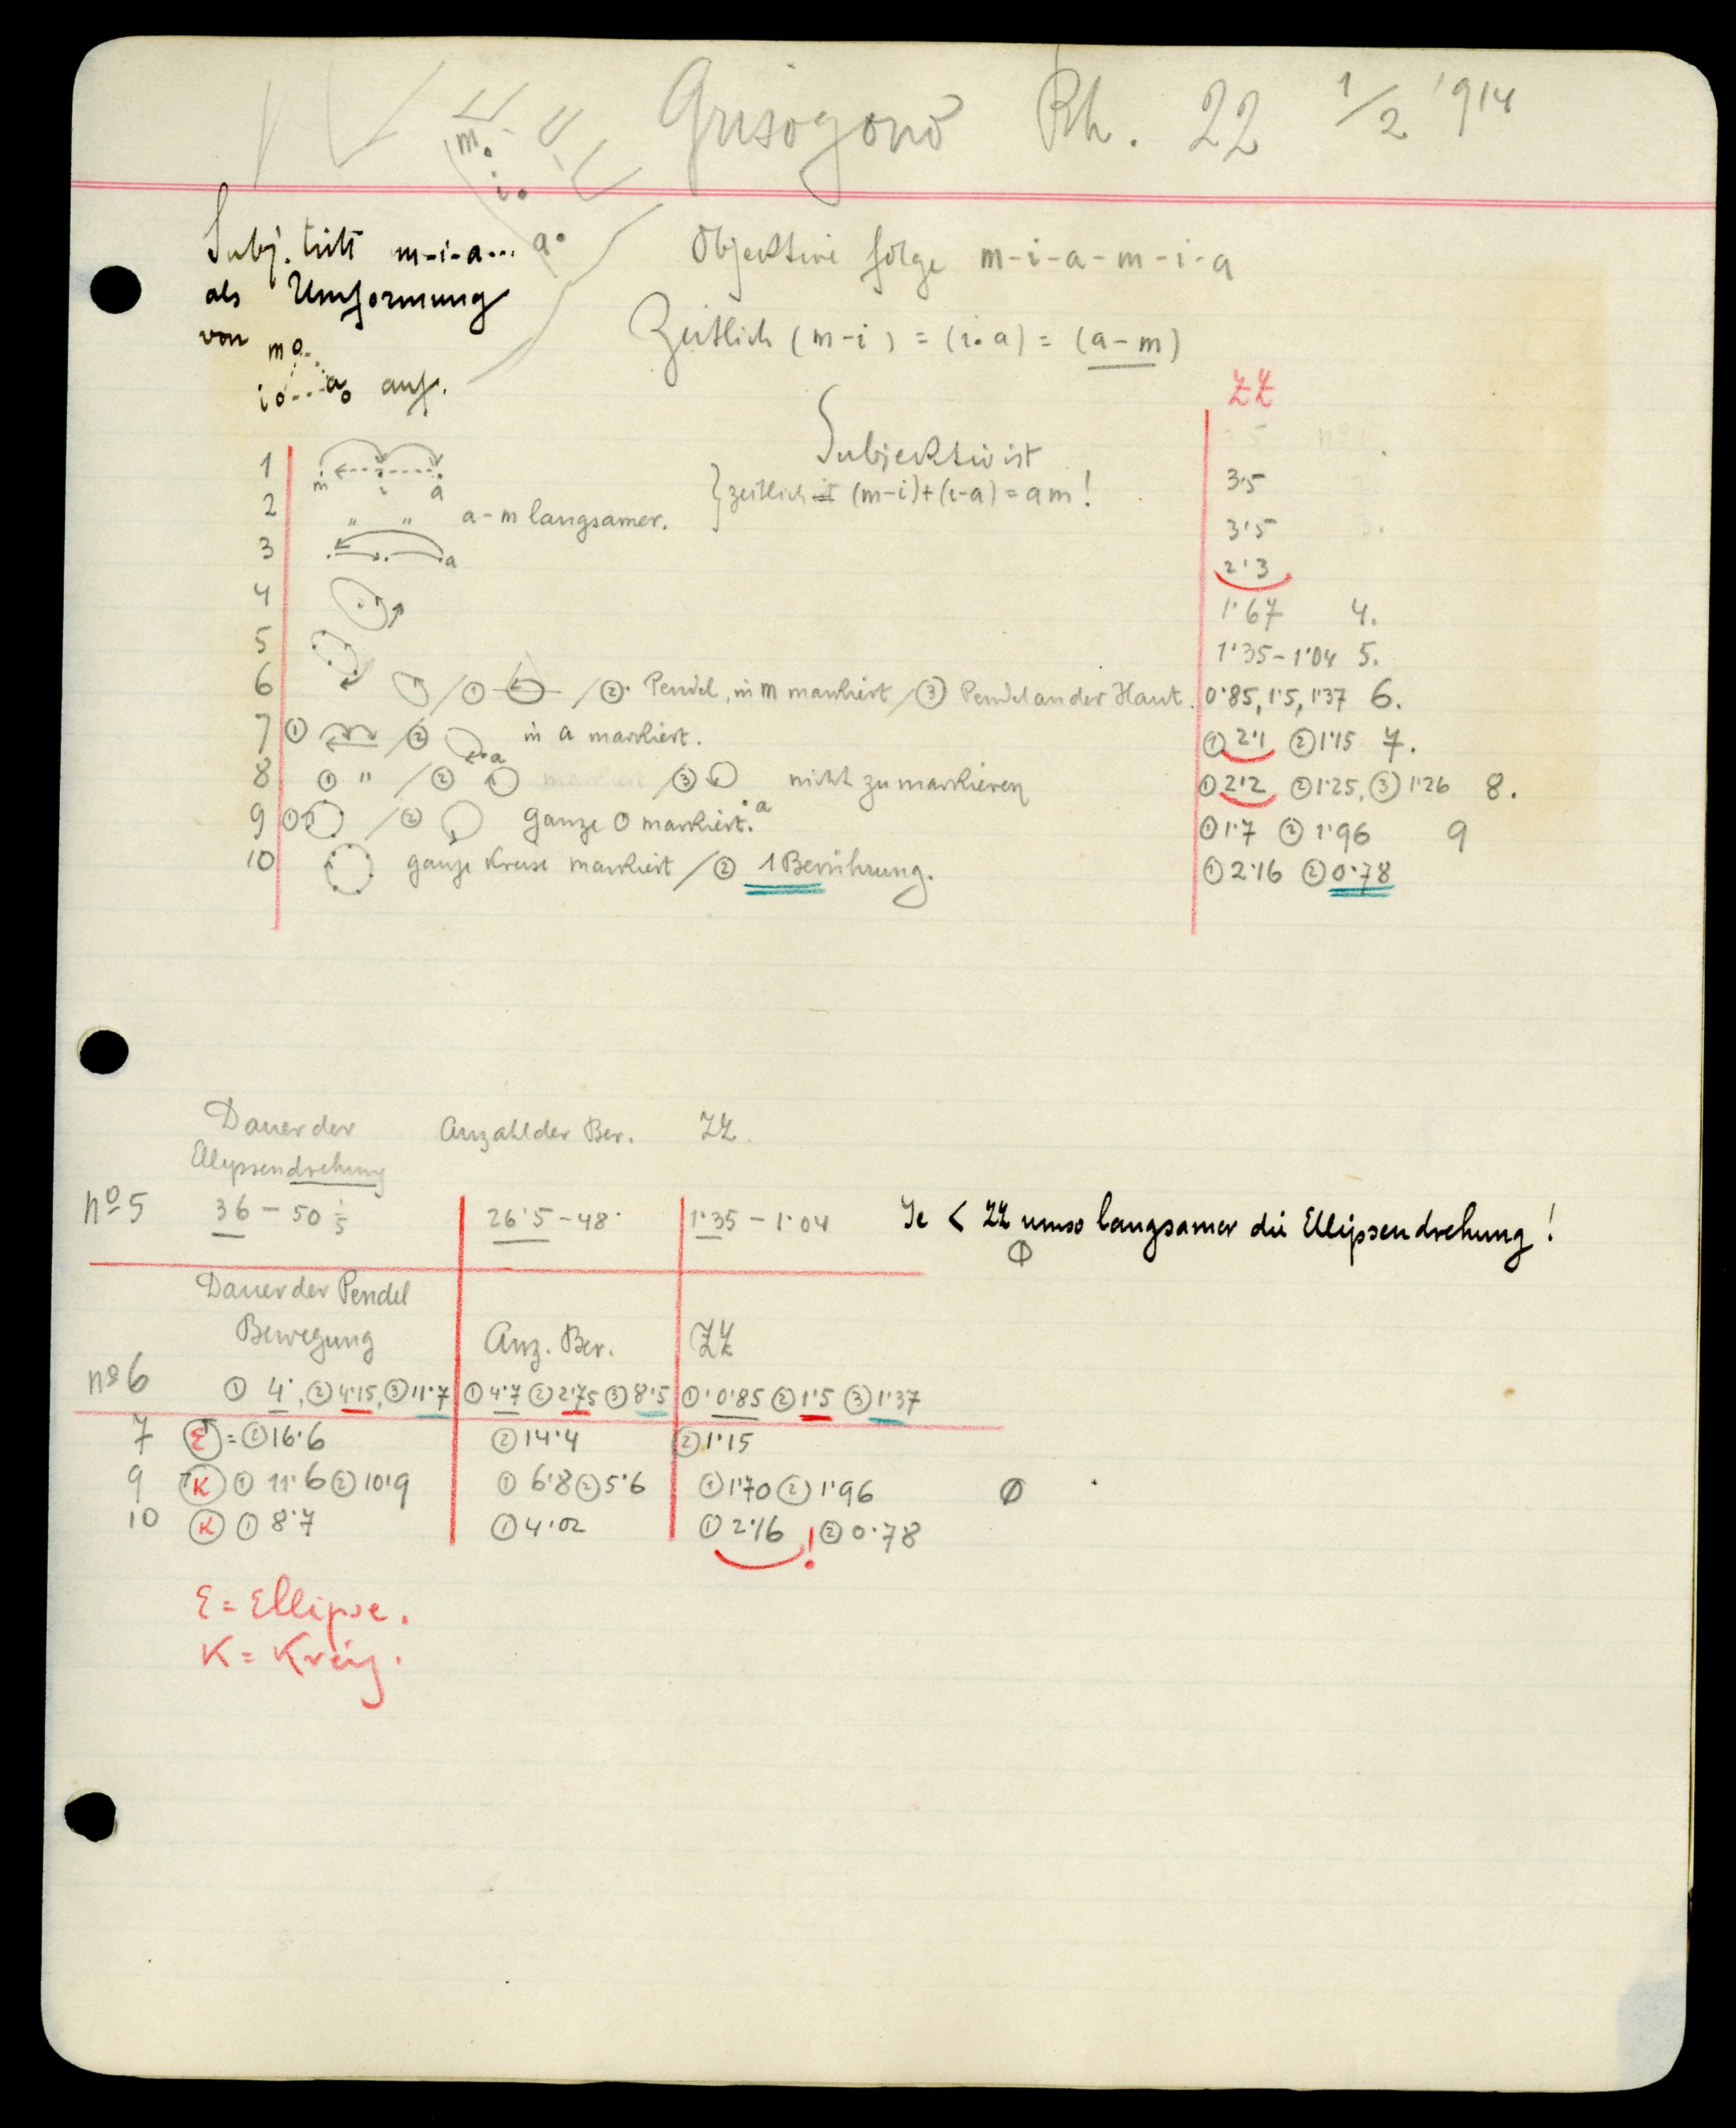 Grisogono Rh. 22 1/2 1914
m.
i.
a.
Subj. tritt m-i-a...
als Umformung
von m
i a auf.
Objektive folge m-i-a-m-i-a
Zeitlich (m-i) = (i.a) = (a-m)
ZZ
Subjektiv ist
1 m i a 3·5
}zeitlich (m-i)+(i-a) = am!
2 " " a-m langsamer. 3'5
3 a 2'3
4 1'67 4.
5 1'35-1'04 5.
6 / ① / ②. Pendel, in m markiert / ③ Pendel an der Haut. 0'85, 1'5, 1'37 6.
7 ① / ② a in a markiert. ① 2'1 ② 1'15 7.
8 ① " / ② markiert / ③ nicht zu markieren ① 2'2 ② 1'25, ③ 1'26 8.
9 ① / ② ganze O markiert. a ① 1'7 ② 1'96 9
10 ganze Kreise markiert / ② 1 Berührung. ① 2'16 ② 0'78
Dauer der Anzahl der Ber. ZZ.
Ellypsendrehung
nº 5 36 - 50 1/5 26'5 - 48' 1'35 - 1'04 Je < ZZ umso langsamer die Ellipsendrehung!
Φ
Dauer der Pendel
Bewegung Anz. Ber. ZZ
nº 6 ① 4', ② 4'15, ③ 11'7 ① 4'7 ② 2'75 ③ 8'5 ① 0'85 ② 1'5 ③ 1'37
7 E = ② 16'6 ② 14'4 ② 1'15
9 K ① 11'6 ② 10'9 ① 6'8 ② 5'6 ① 1'70 ② 1'96 Φ
10 K ① 8'7 ① 4'02 ① 2'16 ! ② 0'78
E = Ellipse.
K = Kreis.